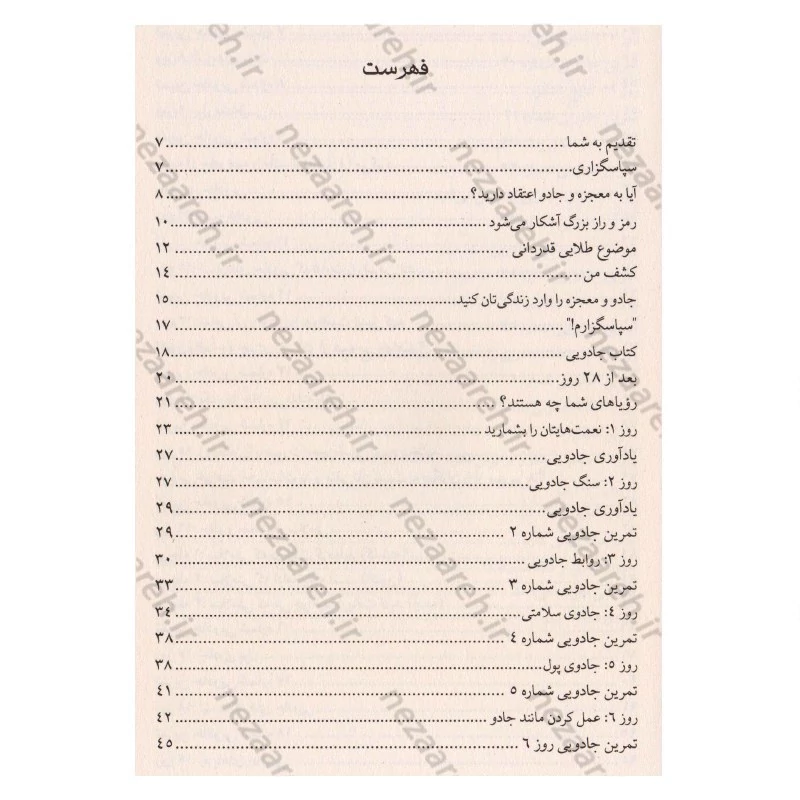 فهرست
تقدیم به شما ........ ۷
سپاسگزاری ........ ۷
آیا به معجزه و جادو اعتقاد دارید؟ ........ ۸
رمز و راز بزرگ آشکار می‌شود ........ ۱۰
موضوع طلایی قدردانی ........ ۱۲
کشف من ........ ۱٤
جادو و معجزه را وارد زندگی‌تان کنید ........ ۱۵
"سپاسگزارم!" ........ ۱۷
کتاب جادویی ........ ۱۸
بعد از ۲۸ روز ........ ۲۰
رؤیاهای شما چه هستند؟ ........ ۲۱
روز ۱: نعمت‌هایتان را بشمارید ........ ۲۳
یادآوری جادویی ........ ۲۷
روز ۲: سنگ جادویی ........ ۲۷
یادآوری جادویی ........ ۲۹
تمرین جادویی شماره ۲ ........ ۲۹
روز ۳: روابط جادویی ........ ۳۰
تمرین جادویی شماره ۳ ........ ۳۳
روز ٤: جادوی سلامتی ........ ۳٤
تمرین جادویی شماره ٤ ........ ۳۸
روز ۵: جادوی پول ........ ۳۸
تمرین جادویی شماره ۵ ........ ٤۱
روز ٦: عمل کردن مانند جادو ........ ٤۲
تمرین جادویی روز ٦ ........ ٤۵
nezaareh.ir